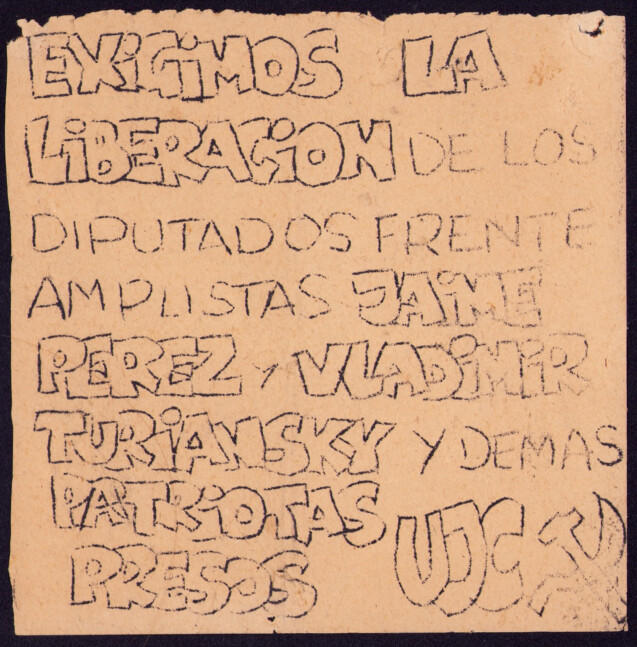 EXIGIMOS LA
LIBERACION DE LOS
DIPUTADOS FRENTE
AMPLISTAS JAIME
PEREZ Y VLADIMIR
TURIANSKY Y DEMAS
PATRIOTAS
PRESOS UJC